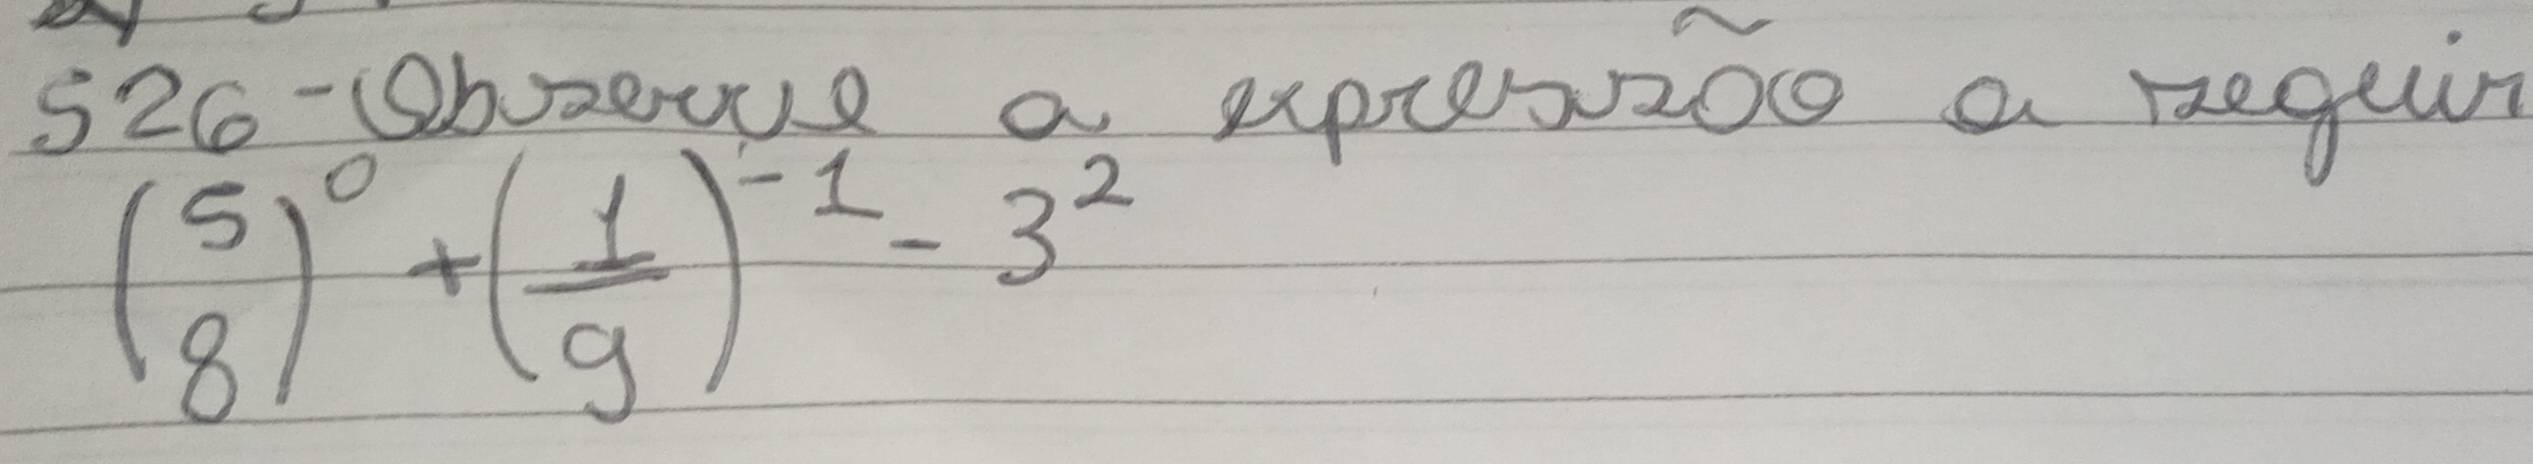 526 - Observe a expressão a seguir
(5/8)⁰ + (1/9)⁻¹ - 3²